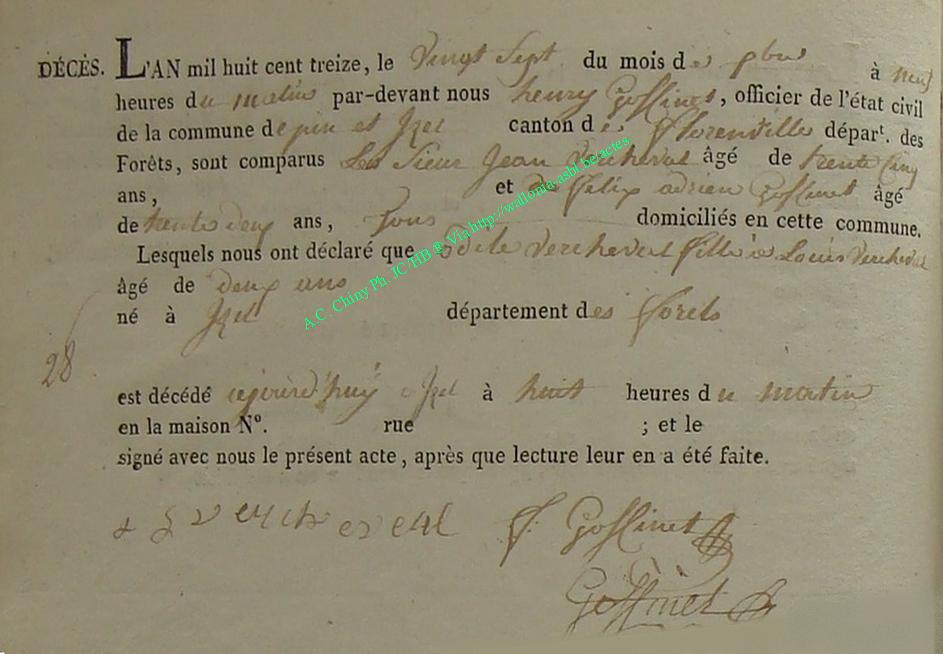 DÉCÈS. L'AN mil huit cent treize, le Vingt Sept du mois de à neuf
heures du matin par-devant nous henry Goffinet, officier de l'état civil
de la commune de pin et Izel canton de florenville départ. des
Forêts, sont comparus Les Sieur Jean Vercheval âgé de trente cinq
ans, et de felix adrien Goffinet âgé
de trente deux ans, Tous domiciliés en cette commune.
Lesquels nous ont déclaré que odile vercheval fille a Louis Vercheval
âgé de deux ans
né à Izel département des forets
28
est décédé aujourd'huy a Izel à huit heures du matin
en la maison N°. rue ; et le
signé avec nous le présent acte, après que lecture leur en a été faite.
vercheval f. Goffinet
Goffinet
A.C. Chiny Ph. JC HB @ Via http://wallonia-asbl.be/actes